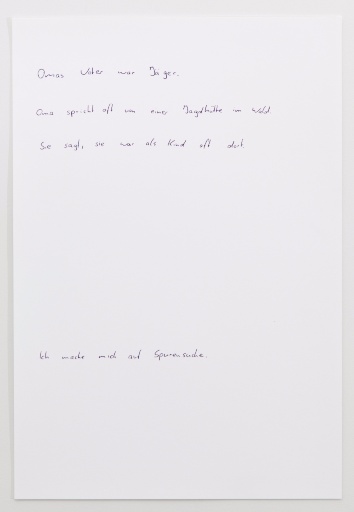 Omas Vater war Jäger.
Oma spricht oft von einer Jagdhütte im Wald.
Sie sagt, sie war als Kind oft dort.
Ich mache mich auf Spurensuche.